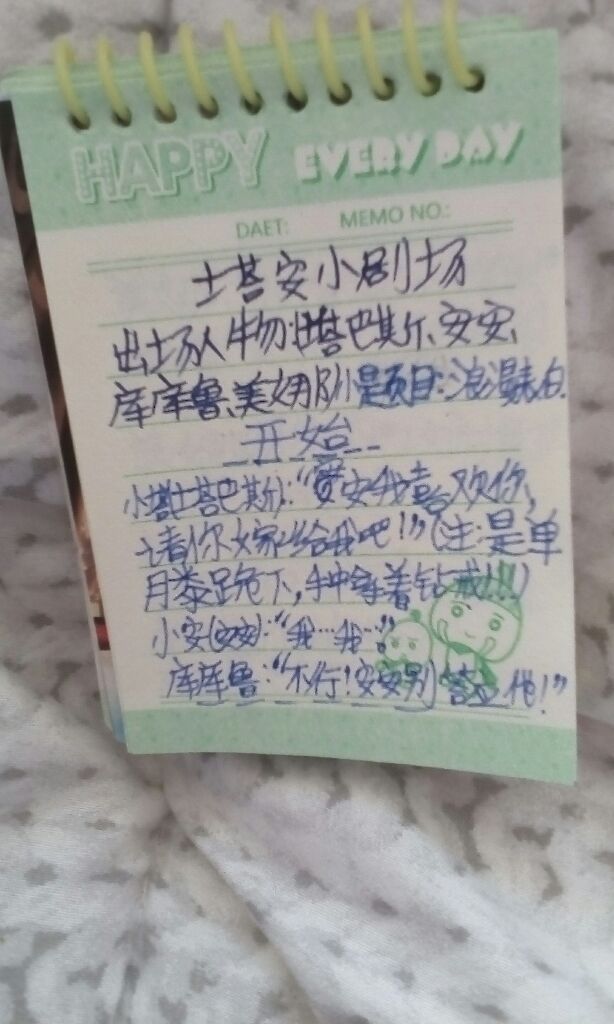 HAPPY EVERY DAY
DAET: MEMO NO.:
士塔安小剧场
出场人物:士塔巴斯尔、安安、
库库鲁、美奶队是项目:浪漫表白.
开始
小塔(士塔巴斯):“安安我喜欢你,
请你嫁给我吧!”(注:是单
月漆跪下,手中拿着钻戒!!!)
小安(安安):“我…我…”
库库鲁:“不行!安安别答应他!”